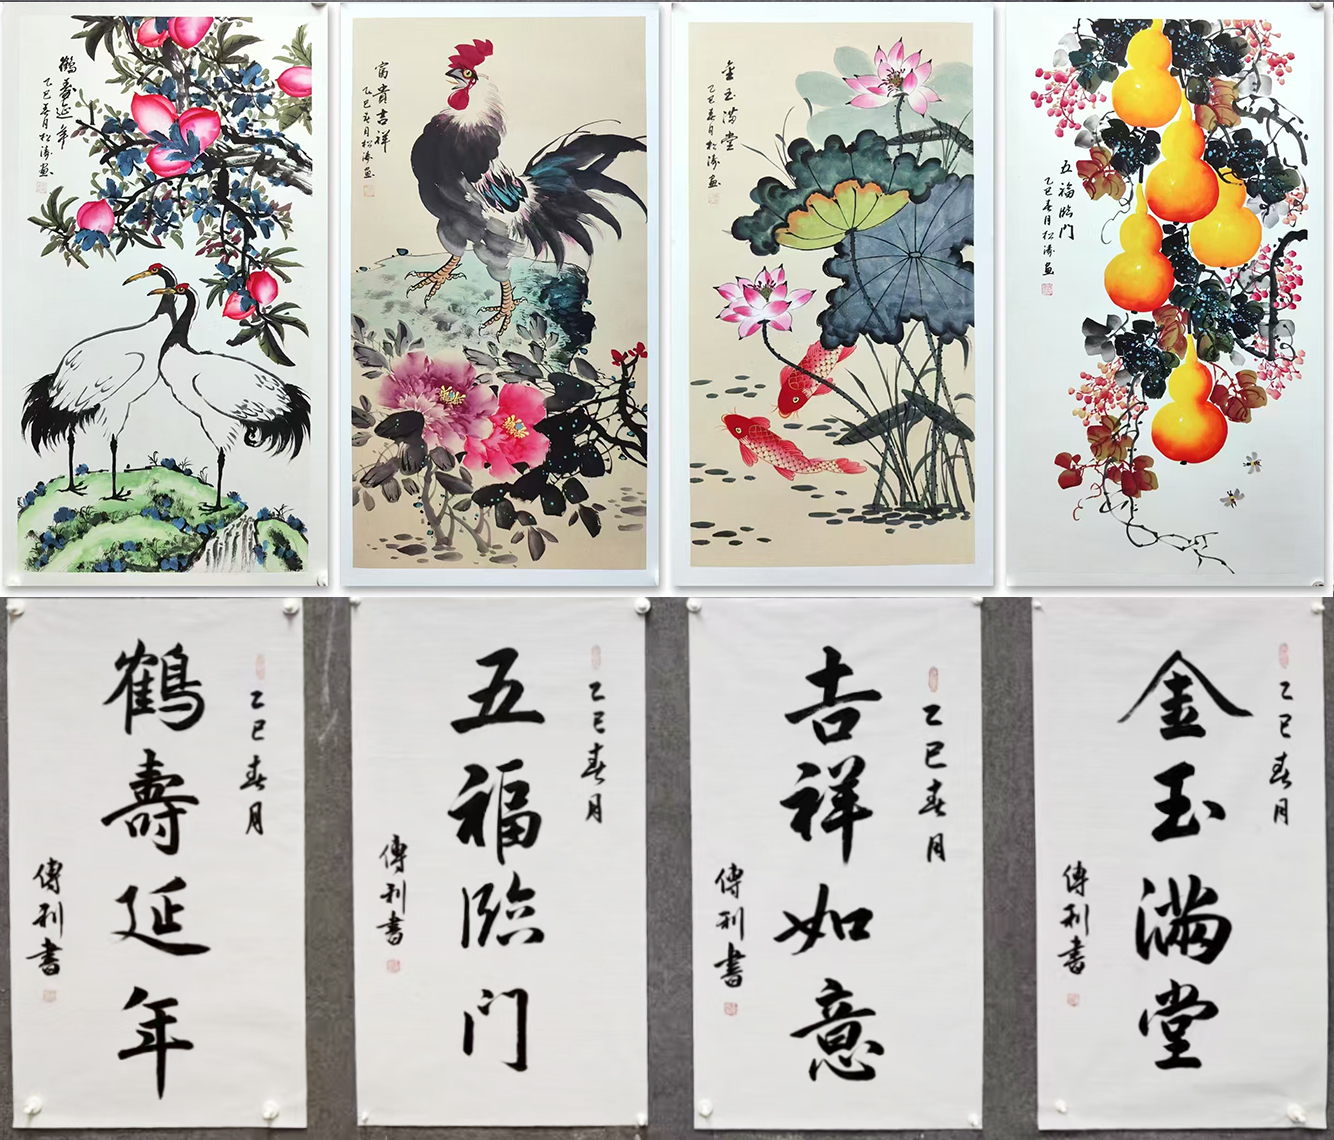 鶴壽延年
乙巳春月松濤畫
富貴吉祥
乙巳春月松濤畫
金玉满堂
乙巳春月松濤畫
五福临门
乙巳春月松濤畫
乙巳春月
鶴壽延年
傳利書
乙巳春月
五福臨门
傳利書
乙巳春月
吉祥如意
傳利書
乙巳春月
金玉滿堂
傳利書